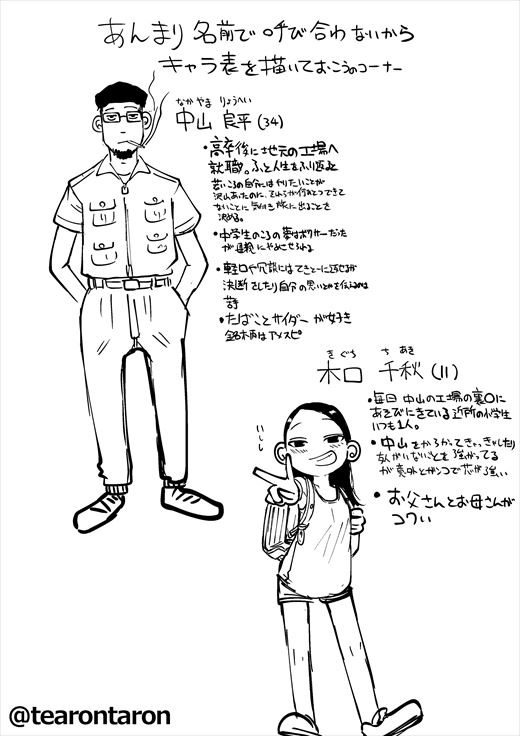 あんまり名前で呼び合わないから
キャラ表を描いておこうのコーナー
なかやま りょうへい
中山 良平(34)
・高卒後に地元の工場へ
就職。ふと人生をふり返ると
若いころの自分にはやりたいことが
沢山あったのに、それらが何ひとつできて
ないことに気付き旅に出ることを
決める。
・中学生のころの夢はボクサーだった
が過酷にやめさせられる
・軽口や冗談にはてきとーに返せるが
決断をしたり自分の思いとかを伝えるのは
苦手
・たばことサイダーが好き
銘柄はアメスピ
きぐち ちあき
木口 千秋(11)
・毎日中山の工場の裏口に
あそびにきている近所の小学生
いつも1人。
・中山をからかってきゃっきゃしたり
友人がいないことを強がってる
が意外とガンコで芯が強い
・お父さんとお母さんが
コワい
いしし
@tearontaron